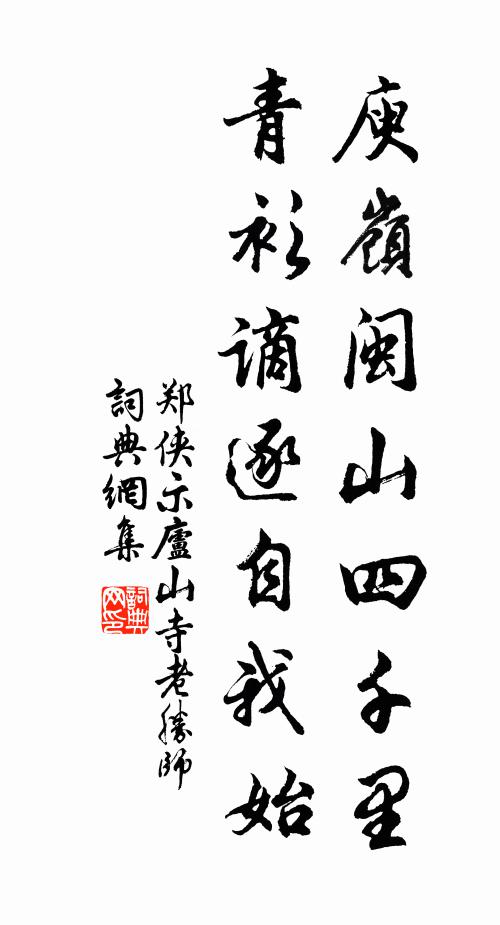 庾嶺閩山四千里
青衫謫逐自我始
郑侠示廬山寺老勝師
詞典網集
詞典网印